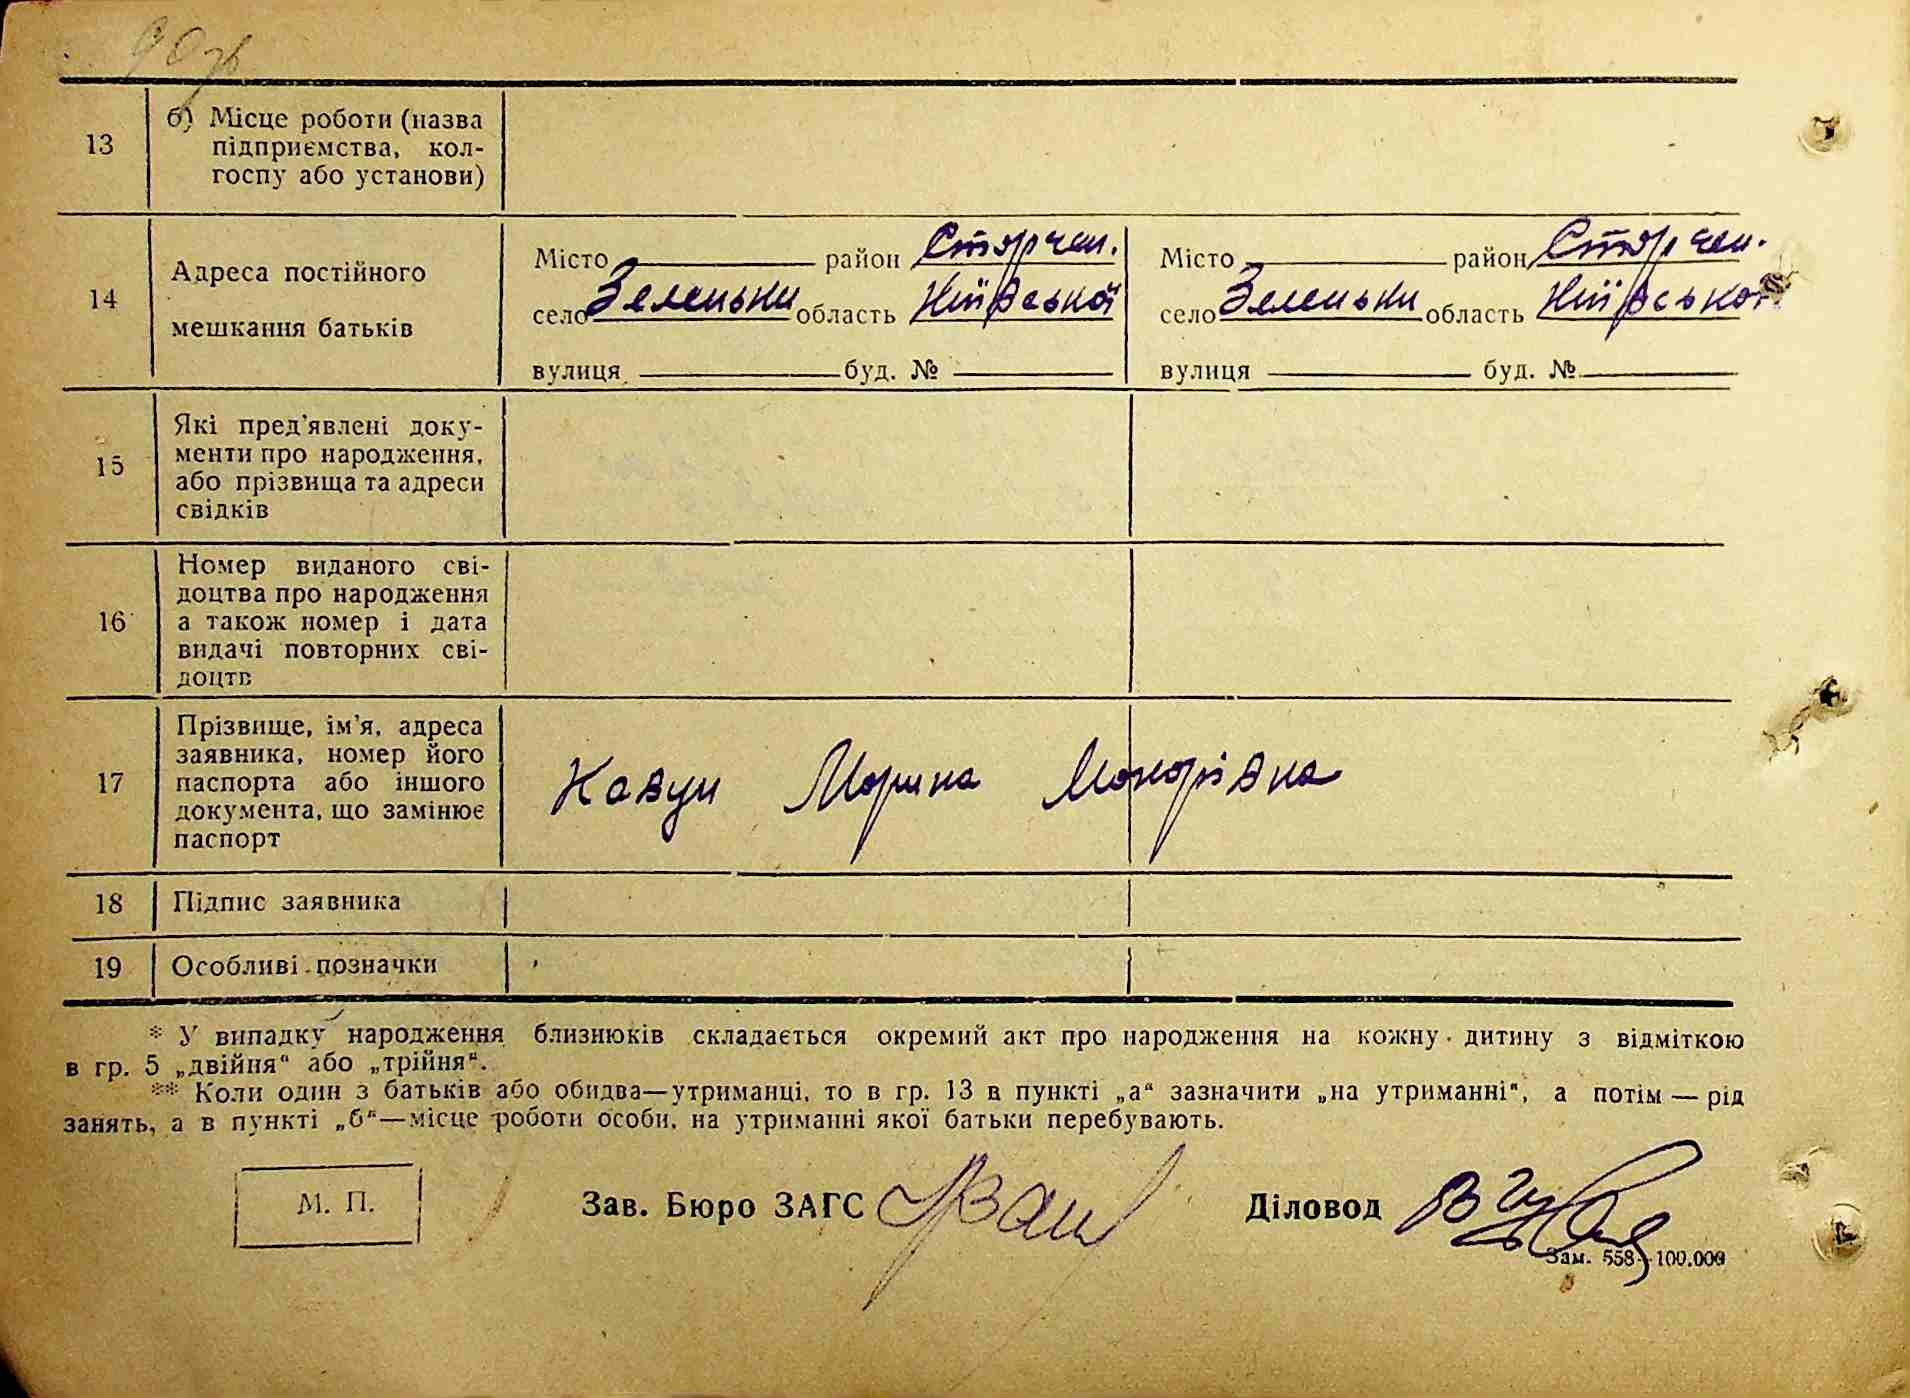 13 б) Місце роботи (назва
підприємства, кол-
госпу або установи)
14 Адреса постійного
мешкання батьків
Місто район Сторчен. Місто район Сторчен.
село Зеленьки область Київської село Зеленьки область Київської
вулиця буд. № вулиця буд. №
15 Які пред'явлені доку-
менти про народження,
або прізвища та адреси
свідків
16 Номер виданого сві-
доцтва про народження
а також номер і дата
видачі повторних сві-
доцтв
17 Прізвище, ім'я, адреса
заявника, номер його
паспорта або іншого
документа, що замінює
паспорт
Кавун Морина Мокорівна
18 Підпис заявника
19 Особливі позначки
* У випадку народження близнюків складається окремий акт про народження на кожну дитину з відміткою
в гр. 5 „двійня“ або „трійня“.
** Коли один з батьків або обидва—утриманці, то в гр. 13 в пункті „а“ зазначити „на утриманні“, а потім — рід
занять, а в пункті „б“—місце роботи особи, на утриманні якої батьки перебувають.
М. П. Зав. Бюро ЗАГС Діловод
Зам. 558—100.000